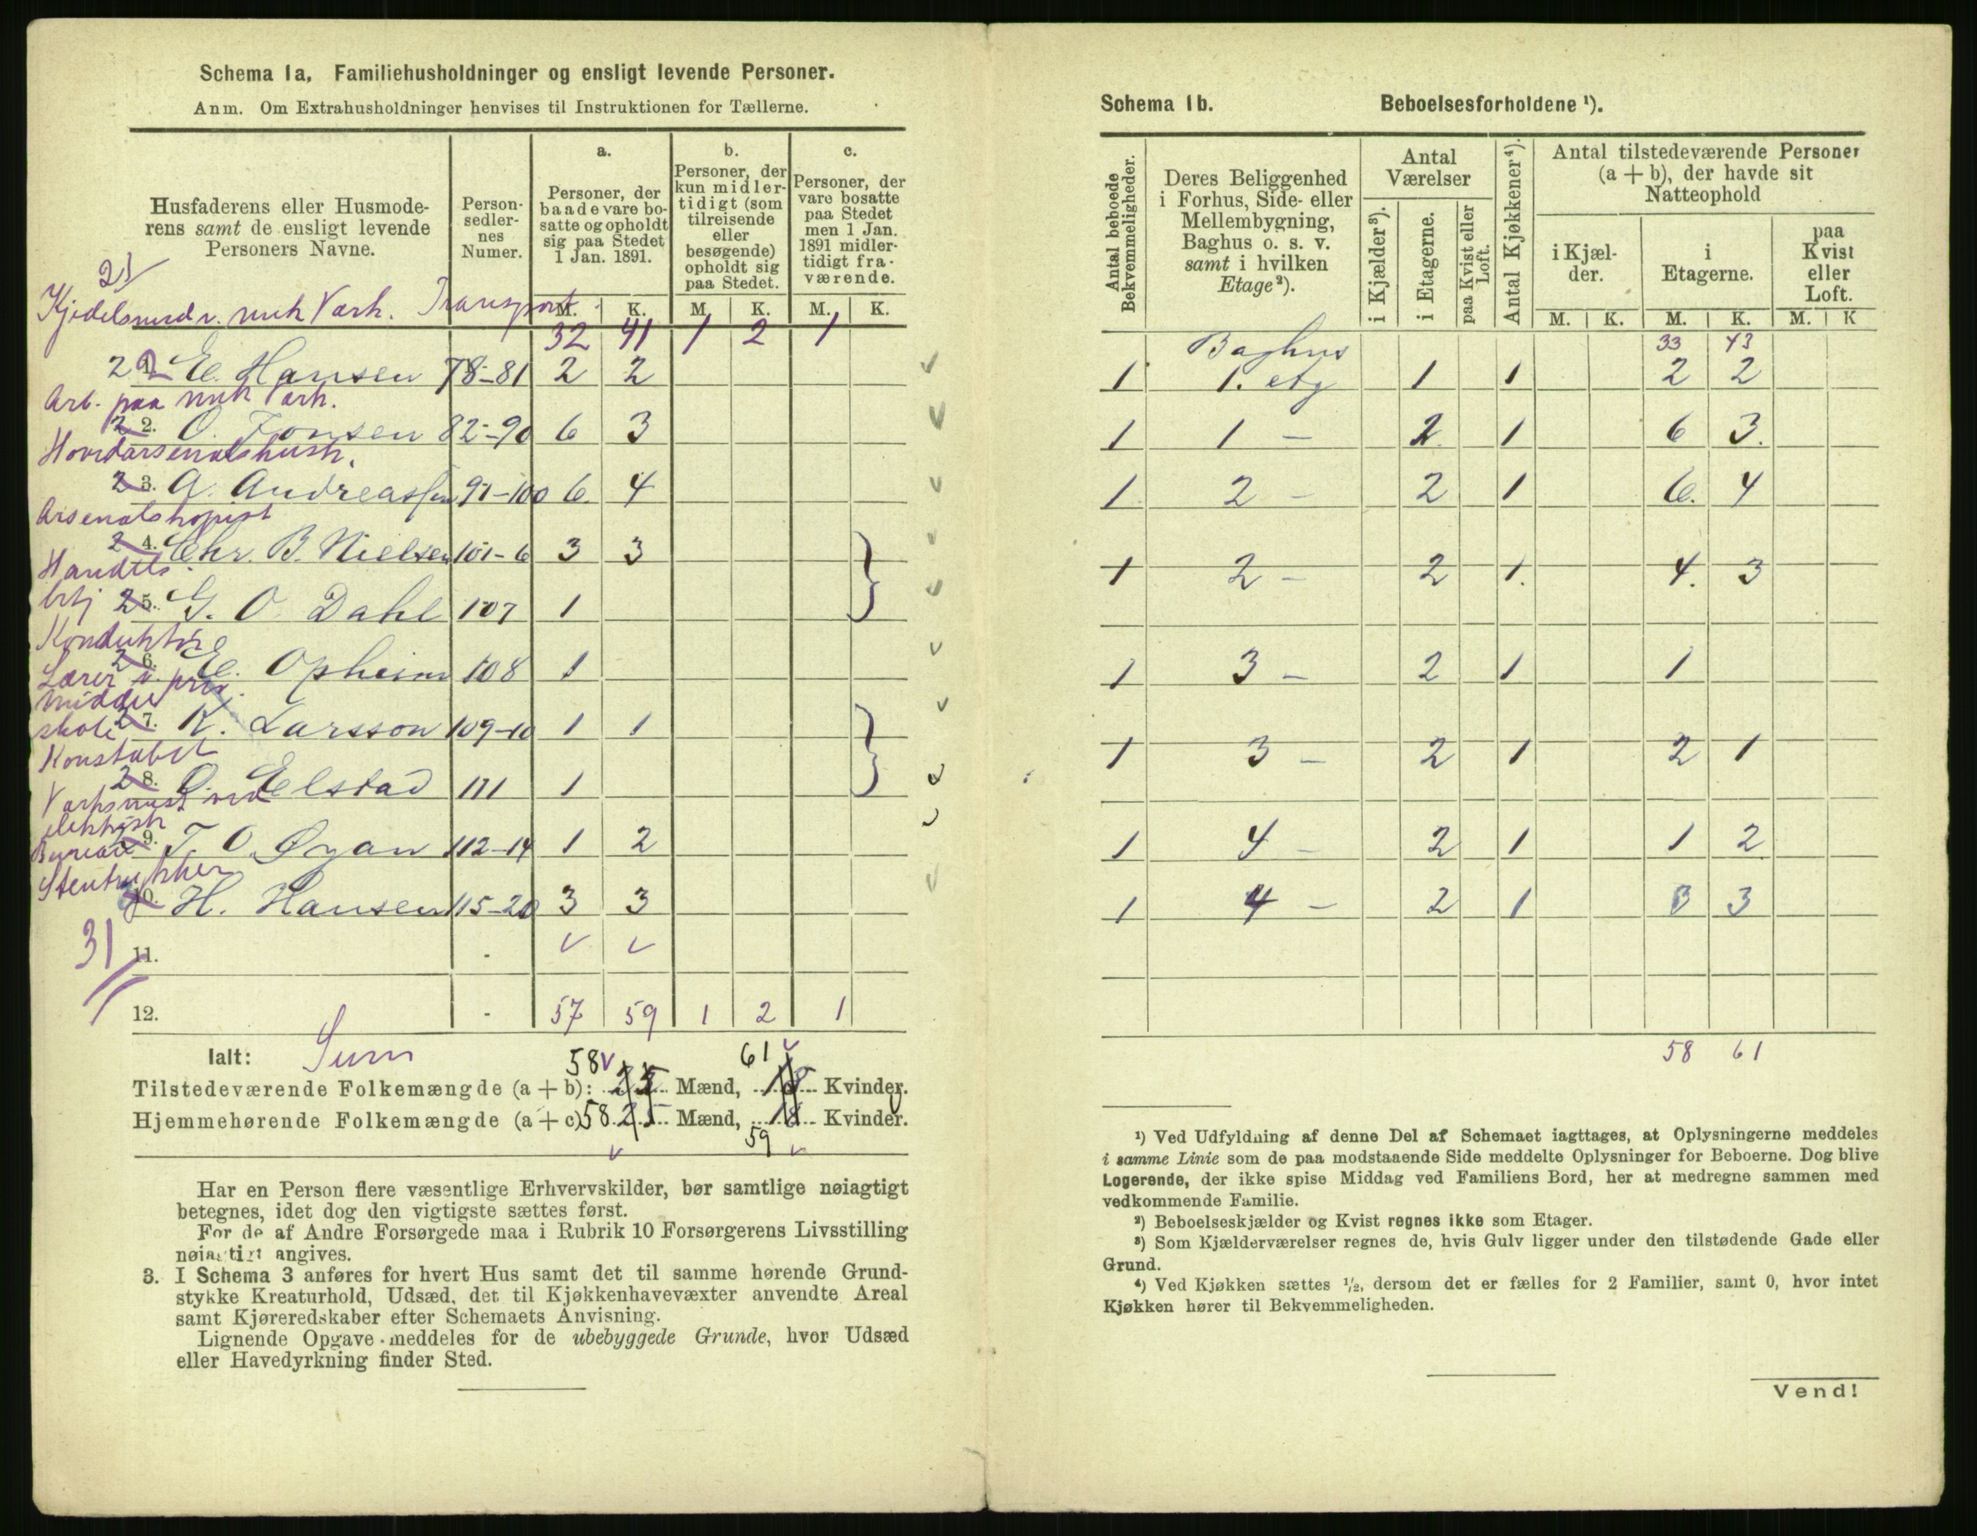 Schema 1a. Familiehusholdninger og ensligt levende Personer.
Anm. Om Extrahusholdninger henvises til Instruktionen for Tællerne.
Husfaderens eller Husmoderens samt de ensligt levende Personers Navne.
Person-sedler-nes Numer.
a.
Personer, der baade vare bosatte og opholdt sig paa Stedet 1 Jan. 1891.
b.
Personer, der kun midlertidigt (som tilreisende eller besøgende) opholdt sig paa Stedet.
c.
Personer, der vare bosatte paa Stedet men 1 Jan. 1891 midlertidigt fraværende.
M. K. M. K. M. K.
21
Kjedelsmed v. mek Værk. Transport 32 41 1 2 1
22 E. Hansen 78-81 2 2
Arb. paa mek Værk.
2. O. Jonsen 82-90 6 3
Hovedarsenalshusk.
3. A. Andreassen 91-100 6 4
Arsenalskopist
4. Chr. B. Nielsen 101-6 3 3
Handels
betj 5. G. O. Dahl 107 1
Konduktør
6. E. Opheim 108 1
Lærer v. priv.
Middel
skole 7. K. Larsson 109-10 1 1
Konstabel
8. O. Elstad 111 1
Værksmest. ved
elektrisk
Bureau 9. T. O. Øyan 112-14 1 2
Stentrykker
10. H. Hansen 115-20 3 3
31 11.
12. 57 59 1 2 1
Ialt: Sum
58 61
Tilstedeværende Folkemængde (a + b): 25 Mænd, 18 Kvinder.
Hjemmehørende Folkemængde (a + c) 58 25 Mænd, 18 Kvinder.
59
Har en Person flere væsentlige Erhvervskilder, bør samtlige nøiagtigt
betegnes, idet dog den vigtigste sættes først.
For de af Andre Forsørgede maa i Rubrik 10 Forsørgerens Livsstilling
nøiagtigt angives.
3. I Schema 3 anføres for hvert Hus samt det til samme hørende Grund-
stykke Kreaturhold, Udsæd, det til Kjøkkenhavevæxter anvendte Areal
samt Kjøreredskaber efter Schemaets Anvisning.
Lignende Opgave meddeles for de ubebyggede Grunde, hvor Udsæd
eller Havedyrkning finder Sted.
Schema 1b. Beboelsesforholdene ¹).
Antal beboede Bekvemmeligheder.
Deres Beliggenhed i Forhus, Side- eller Mellembygning, Baghus o. s. v. samt i hvilken Etage²).
Antal Værelser
i Kjælder³).
i Etagerne.
paa Kvist eller Loft.
Antal Kjøkkener⁴).
Antal tilstedeværende Personer (a + b), der havde sit Natteophold
i Kjælder.
i Etagerne.
paa Kvist eller Loft.
M. K. M. K. M. K
33 43
Baghus
1 1. etg 1 1 2 2
1 1 — 2 1 6 3.
1 2 — 2 1 6. 4
1 2 — 2 1. 4. 3
1 3 — 2 1 1
1 3 — 2 1 2 1
1 4 — 2 1 1 2
1 4 — 2 1 3 3
58 61
¹) Ved Udfyldning af denne Del af Schemaet iagttages, at Oplysningerne meddeles
i samme Linie som de paa modstaaende Side meddelte Oplysninger for Beboerne. Dog blive
Logerende, der ikke spise Middag ved Familiens Bord, her at medregne sammen med
vedkommende Familie.
²) Beboelseskjælder og Kvist regnes ikke som Etager.
³) Som Kjælderværelser regnes de, hvis Gulv ligger under den tilstødende Gade eller
Grund.
⁴) Ved Kjøkken sættes ½, dersom det er fælles for 2 Familier, samt 0, hvor intet
Kjøkken hører til Bekvemmeligheden.
Vend!